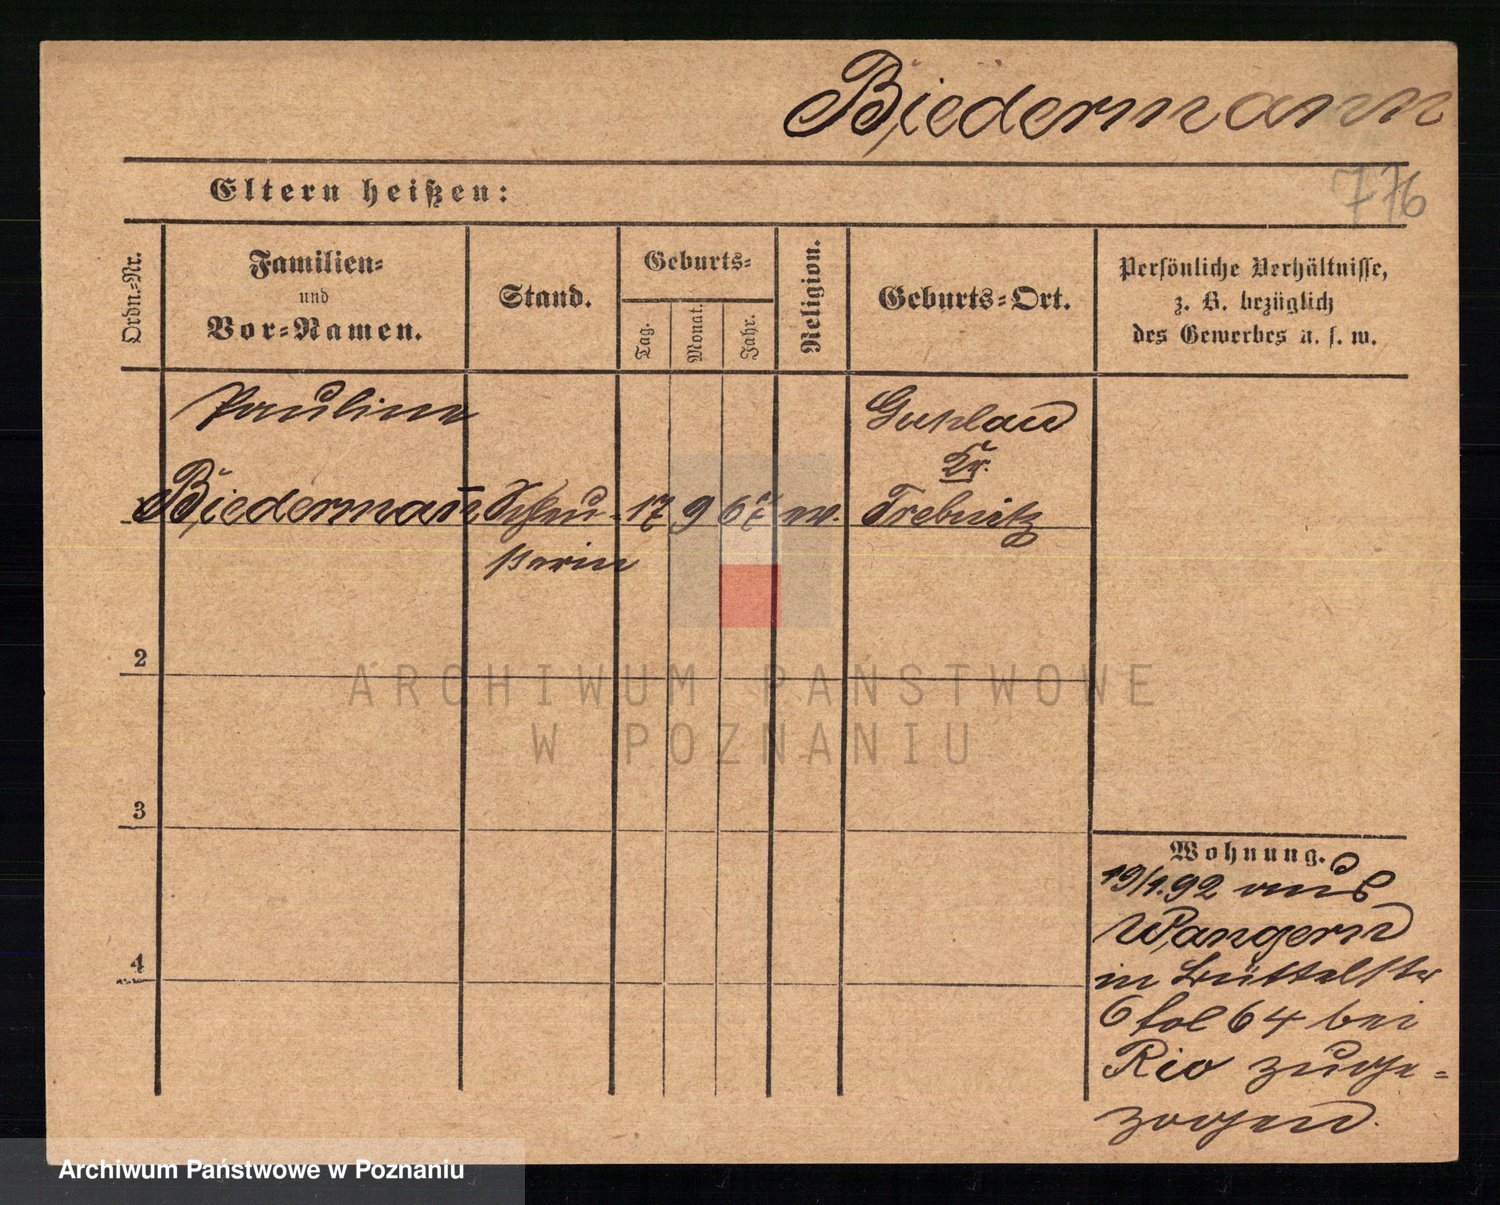 Biedermann
776
Eltern heißen:
Ordn.-Nr.
Familien-
und
Vor-Namen.
Stand.
Geburts-
Tag.
Monat.
Jahr.
Religion.
Geburts-Ort.
Persönliche Verhältnisse,
z. B. bezüglich
des Gewerbes u. s. w.
Pauline
Guhlau
Kr.
Biederman̄ Schleu- 17 9 67 ev. Trebnitz
ßerin
2
3
4
Wohnung.
19/1.92 aus
Wangern
in Büttelstr
6 fol 64 bei
Rio zuge-
zogen.
ARCHIWUM PAŃSTWOWE
W POZNANIU
Archiwum Państwowe w Poznaniu